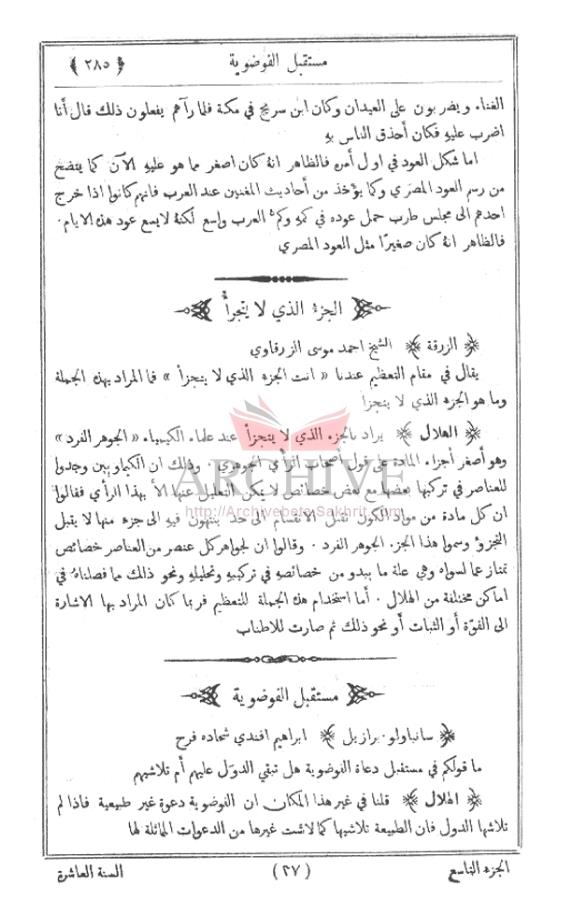 ﴿ ٢٨٥ ﴾ مستقبل الفوضوية
الغناء ويضربون على العيدان وكان ابن سريج في مكة فلما رآهم يفعلون ذلك قال أنا
اضرب عليهِ فكان أحذق الناس بهِ
اما شكل العود في اول أمره فالظاهر انهُ كان اصغر مما هو عليهِ الآن كما يتضح
من رسم العود المصري وكما يؤخذ من أحاديث المغنين عند العرب فانهم كانوا اذا خرج
احدهم الى مجلس طرب حمل عوده في كمهِ وكم العرب واسع لكنهُ لا يسع عود هذه الايام.
فالظاهر انهُ كان صغيرًا مثل العود المصري
الجزء الذي لا يتجزأ
﴿ الزرقة ﴾ الشيخ احمد موسى الزرقاوي
يقال في مقام التعظيم عندنا « انت الجزء الذي لا يتجزأ » فما المراد بهذه الجملة
وما هو الجزء الذي لا يتجزأ
﴿ الهلال ﴾ يراد بالجزء الذي لا يتجزأ عند علماء الكيمياء « الجوهر الفرد »
وهو أصغر أجزاء المادة على قول أصحاب الرأي الجوهري . وذلك ان الكيماويين وجدوا
للعناصر في تركبها بعضها مع بعض خصائص لا يمكن التعليل عنها الا بهذا الرأي فقالوا
ان كل مادة من مواد الكون تقبل الانقسام الى حد ينتهون فيهِ الى جزء منها لا يقبل
التجزؤ وسموا هذا الجزء الجوهر الفرد . وقالوا ان لجواهر كل عنصر من العناصر خصائص
تمتاز عما لسواه وهي علة ما يبدو من خصائصهِ في تركيبهِ وتحليلهِ ونحو ذلك مما فصلناهُ في
اماكن مختلفة من الهلال . أما استخدام هذه الجملة للتعظيم فربما كان المراد بها الاشارة
الى القوَّة أو الثبات أو نحو ذلك ثم صارت للاطناب
ARCHIVE
http://Archivebeta.Sakhrit.com
مستقبل الفوضوية
﴿ سانباولو . برازيل ﴾ ابراهيم افندي شحاده فرح
ما قولكم في مستقبل دعاة الفوضوية هل تبقي الدوَل عليهم أم تلاشيهم
﴿ الهلال ﴾ قلنا في غير هذا المكان ان الفوضوية دعوة غير طبيعية فاذا لم
تلاشها الدول فان الطبيعة تلاشيها كما لاشت غيرها من الدعوات المماثلة لها
الجزء التاسع (٣٧) السنة العاشرة